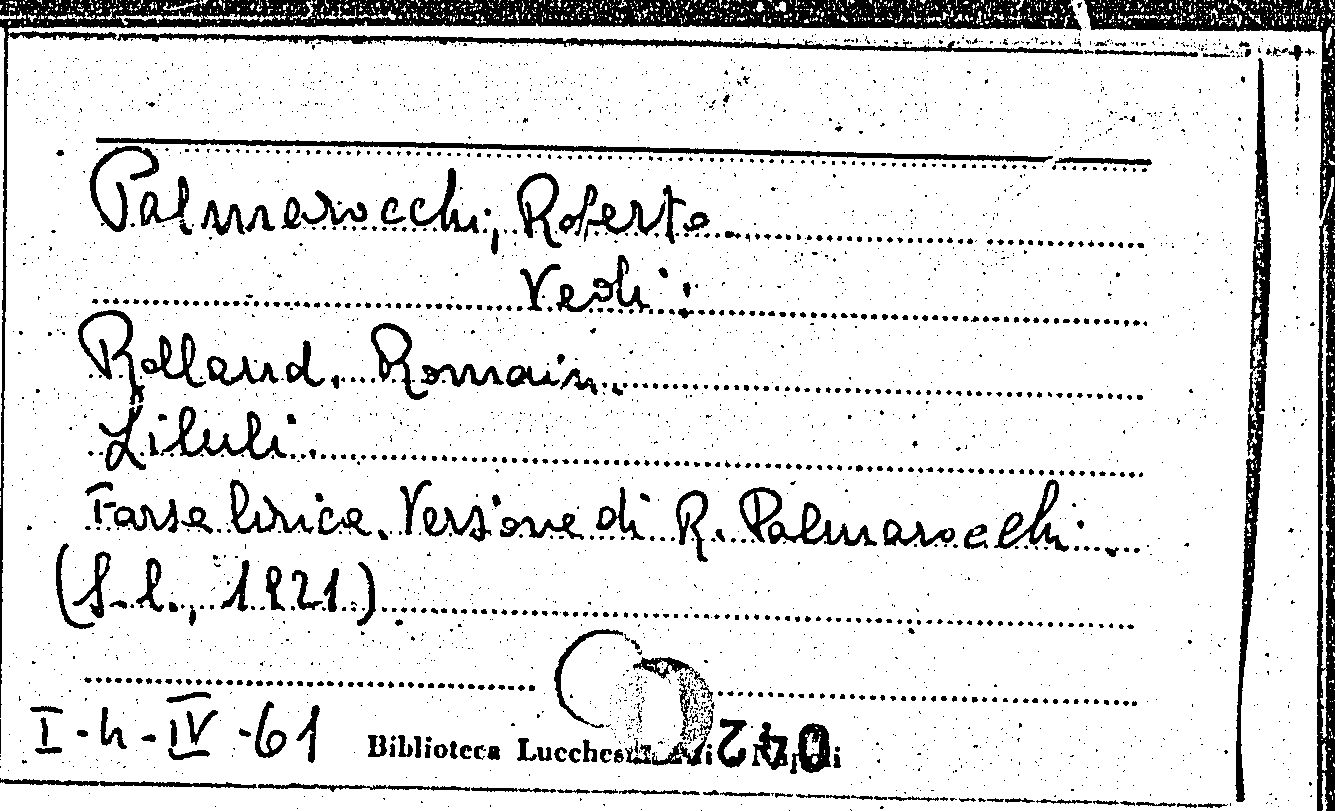 Palmarocchi, Roberto.
Vedi:
Rolland, Romain.
Liluli.
Farsa lirica. Versione di R. Palmarocchi.
(S.l., 1921)
I-h-IV-61
Biblioteca
042